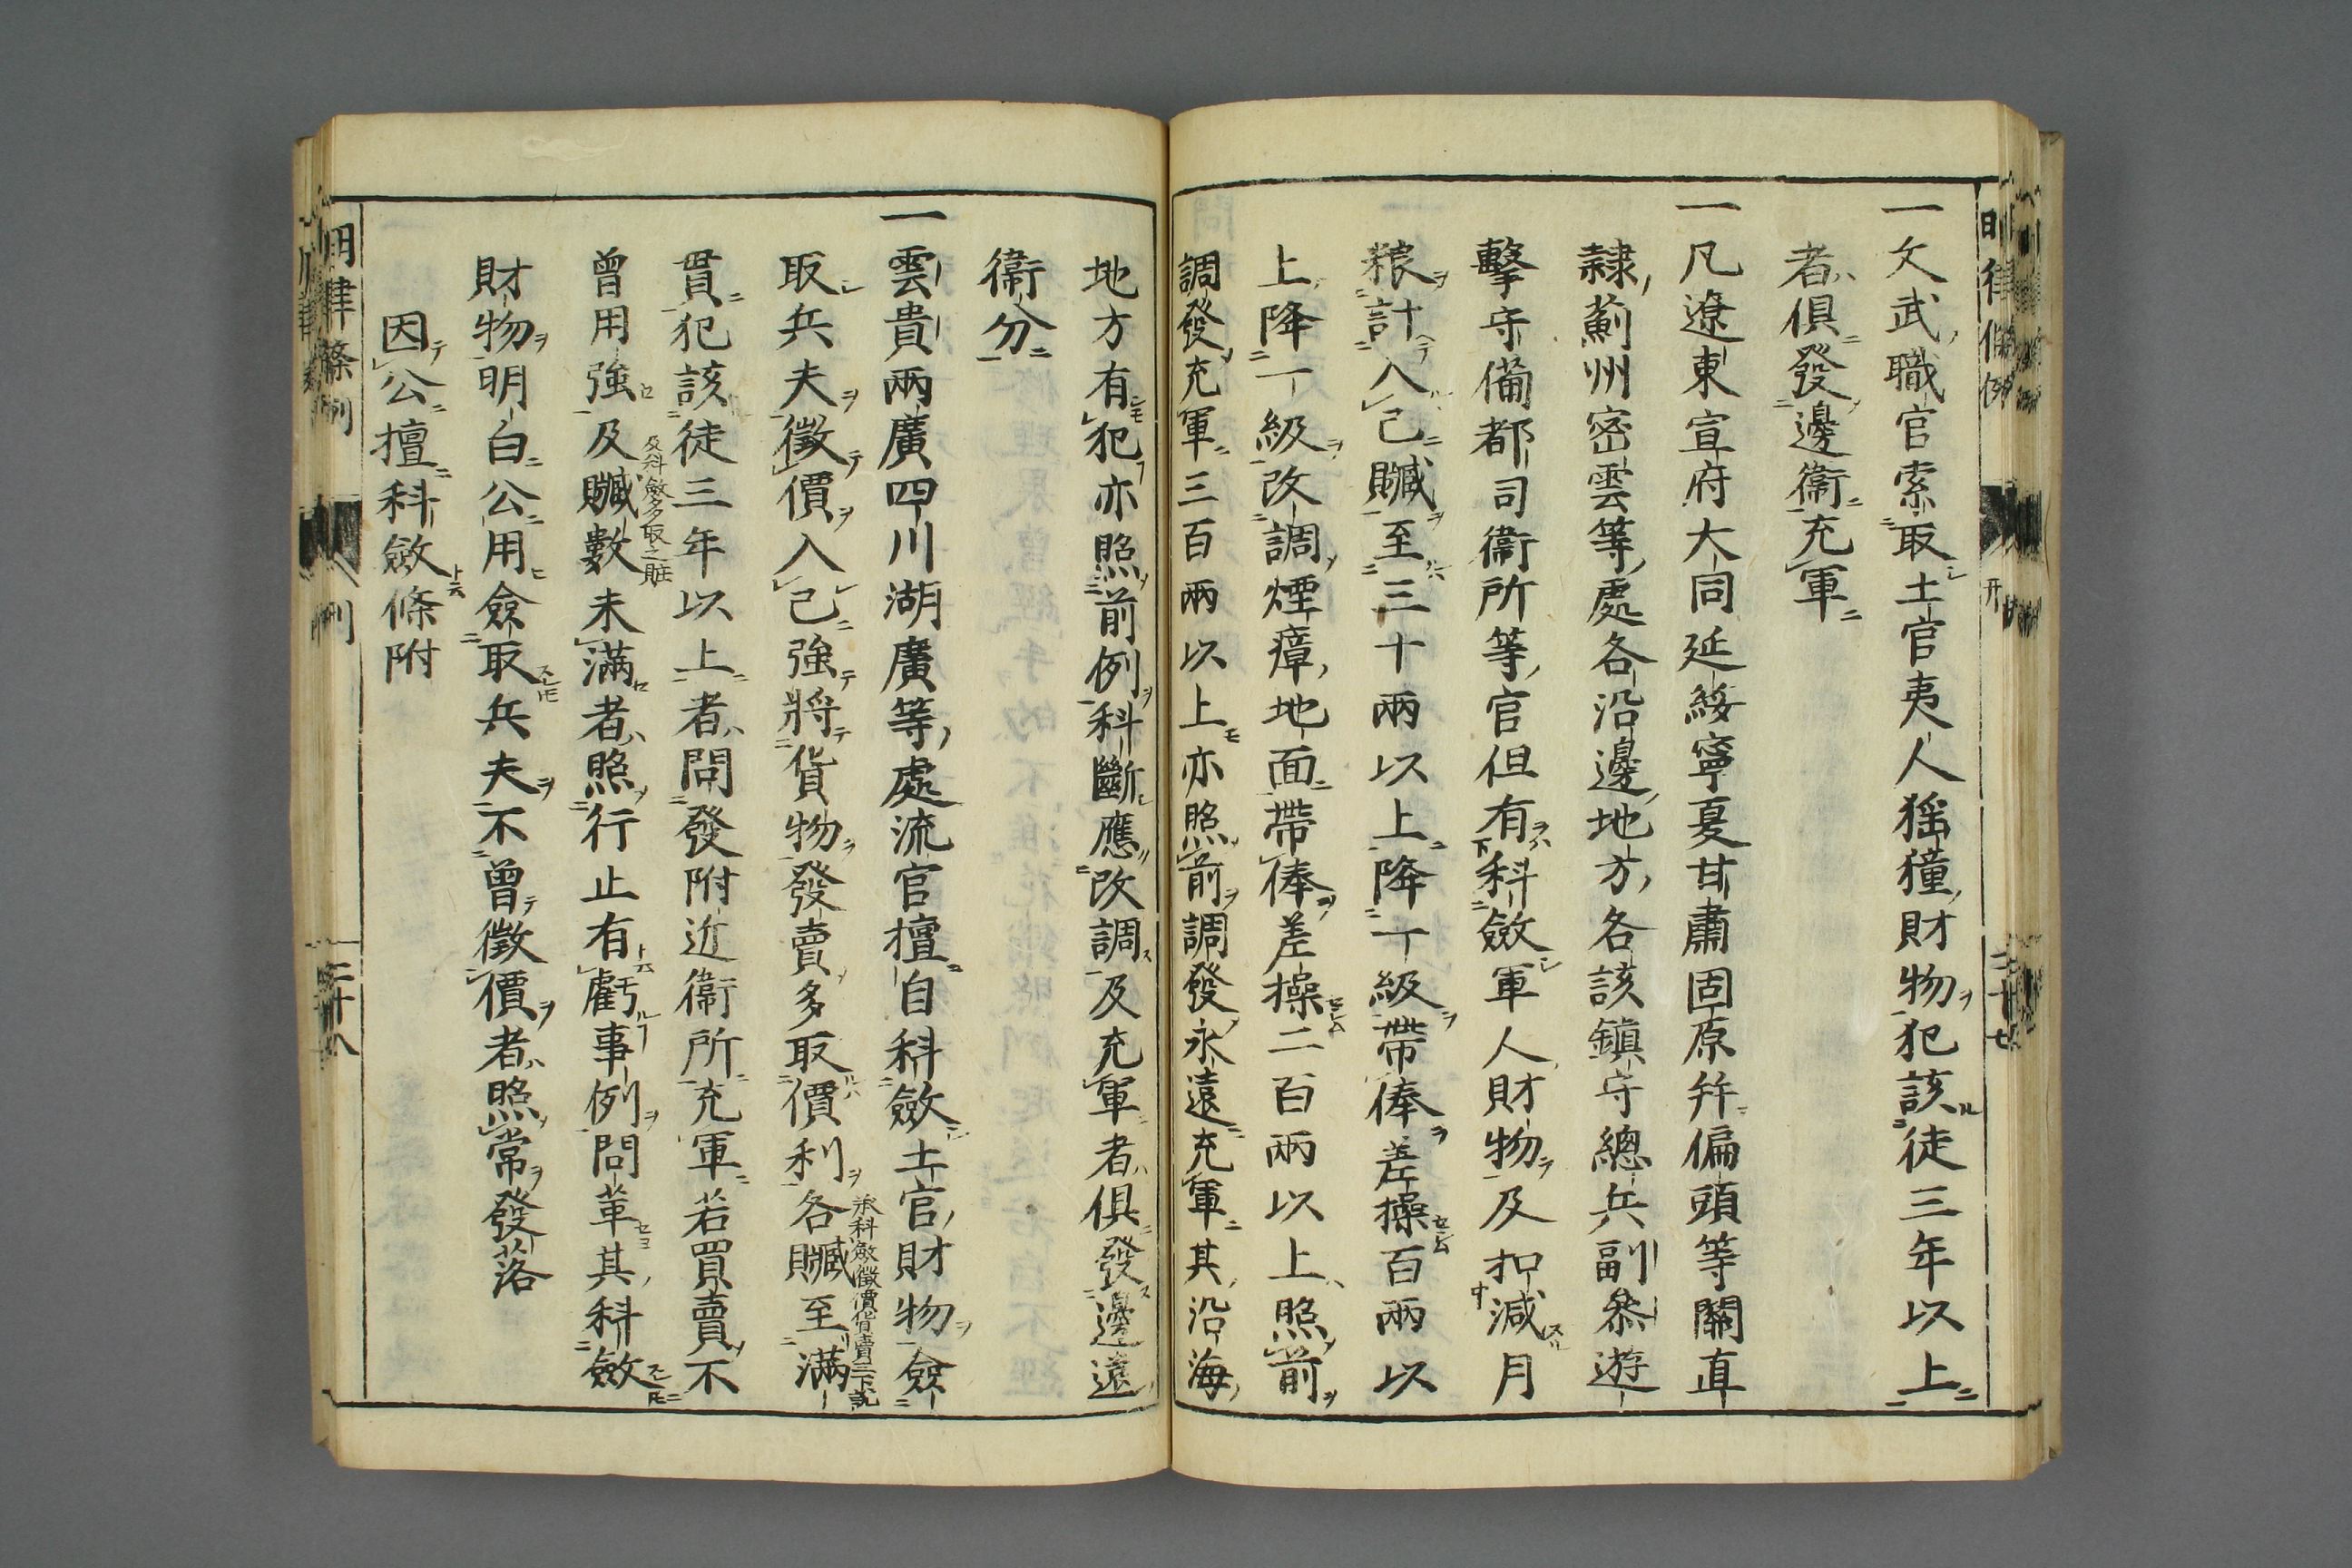 一文武職官索取土官夷人猺獞財物犯該徒三年以上
者俱發邊衞充軍
一凡遼東宣府大同延綏寧夏甘肅固原幷偏頭等關直
隸薊州密雲等處各沿邊地方各該鎮守總兵副叅遊
擊守備都司衞所等官但有科斂軍人財物及扣減月
粮計入己贓至三十兩以上降一級帶俸差操百兩以
上降一級改調煙瘴地面帶俸差操二百兩以上照前
調發充軍三百兩以上亦照前調發永遠充軍其沿海
地方有犯亦照前例科斷應改調及充軍者俱發邊遠
衞分
一雲貴兩廣四川湖廣等處流官擅自科斂土官財物僉
取兵夫徵價入己強將貨物發賣多取價利各贓至滿
承科斂徵價貨賣三下說
貫犯該徒三年以上者問發附近衞所充軍若買賣不
曾用強及贓數未滿者照行止有虧事例問革其科斂
及科斂多取之賍
財物明白公用僉取兵夫不曾徵價者照常發落
因公擅科斂條附
明律條例
二十八